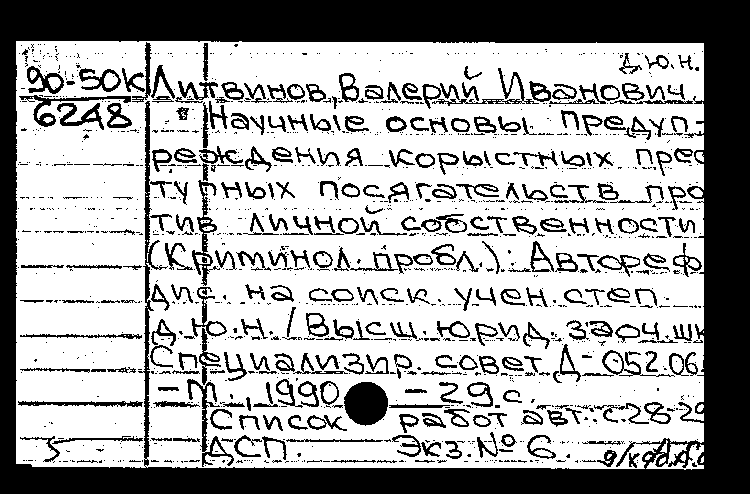 Д.Ю.Н.
90-50К Литвинов, Валерий Иванович.
6248 Научные основы предуп-
реждения корыстных прес
тупных посягательств про
тив личной собственности
(Криминол. пробл.): Автореф
дис. на соиск. учен. степ.
д.ю.н. / Высш. юрид. заоч. шк
Специализир. совет Д-052.06.
– М., 1990 – 29 с.
Список работ авт.: с. 28-29
5 ДСП. Экз. № 6.